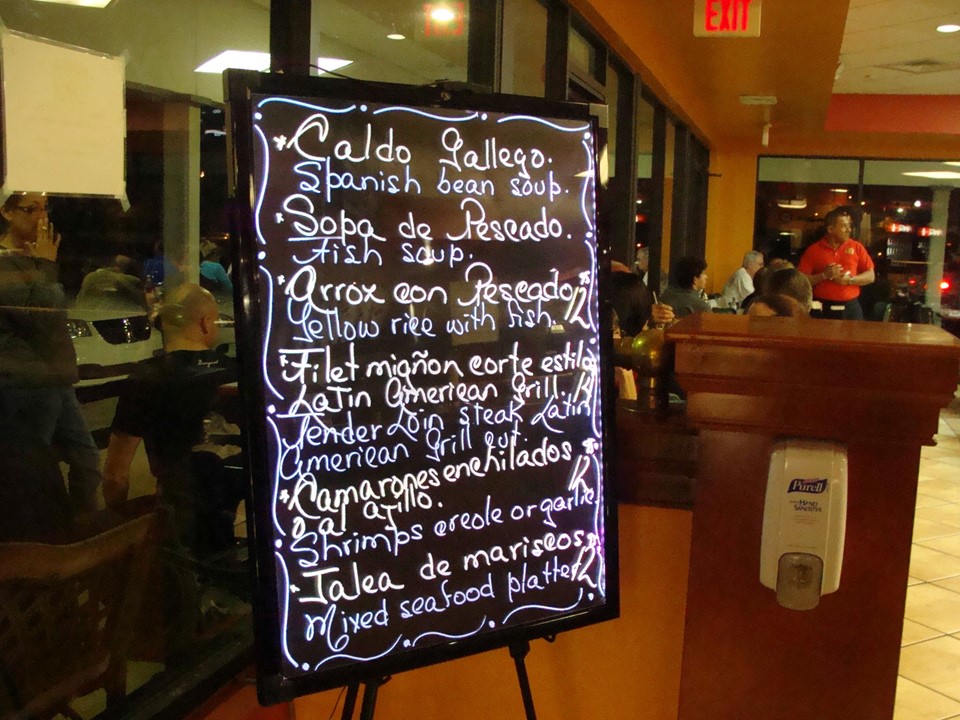 EXIT
*Caldo Gallego.
Spanish bean soup.
*Sopa de Pescado.
Fish soup.
*Arrox con Pescado
Yellow rice with fish. 12
*Filet migñon corte estilo
Latin American Grill.
Tender Loin steak Latin
American Grill cut.
*Camarones enchilados
o al ajillo. 12
Shrimps creole or garlic
*Jalea de mariscos
Mixed seafood platter 12
Purell
HAND SANITIZER